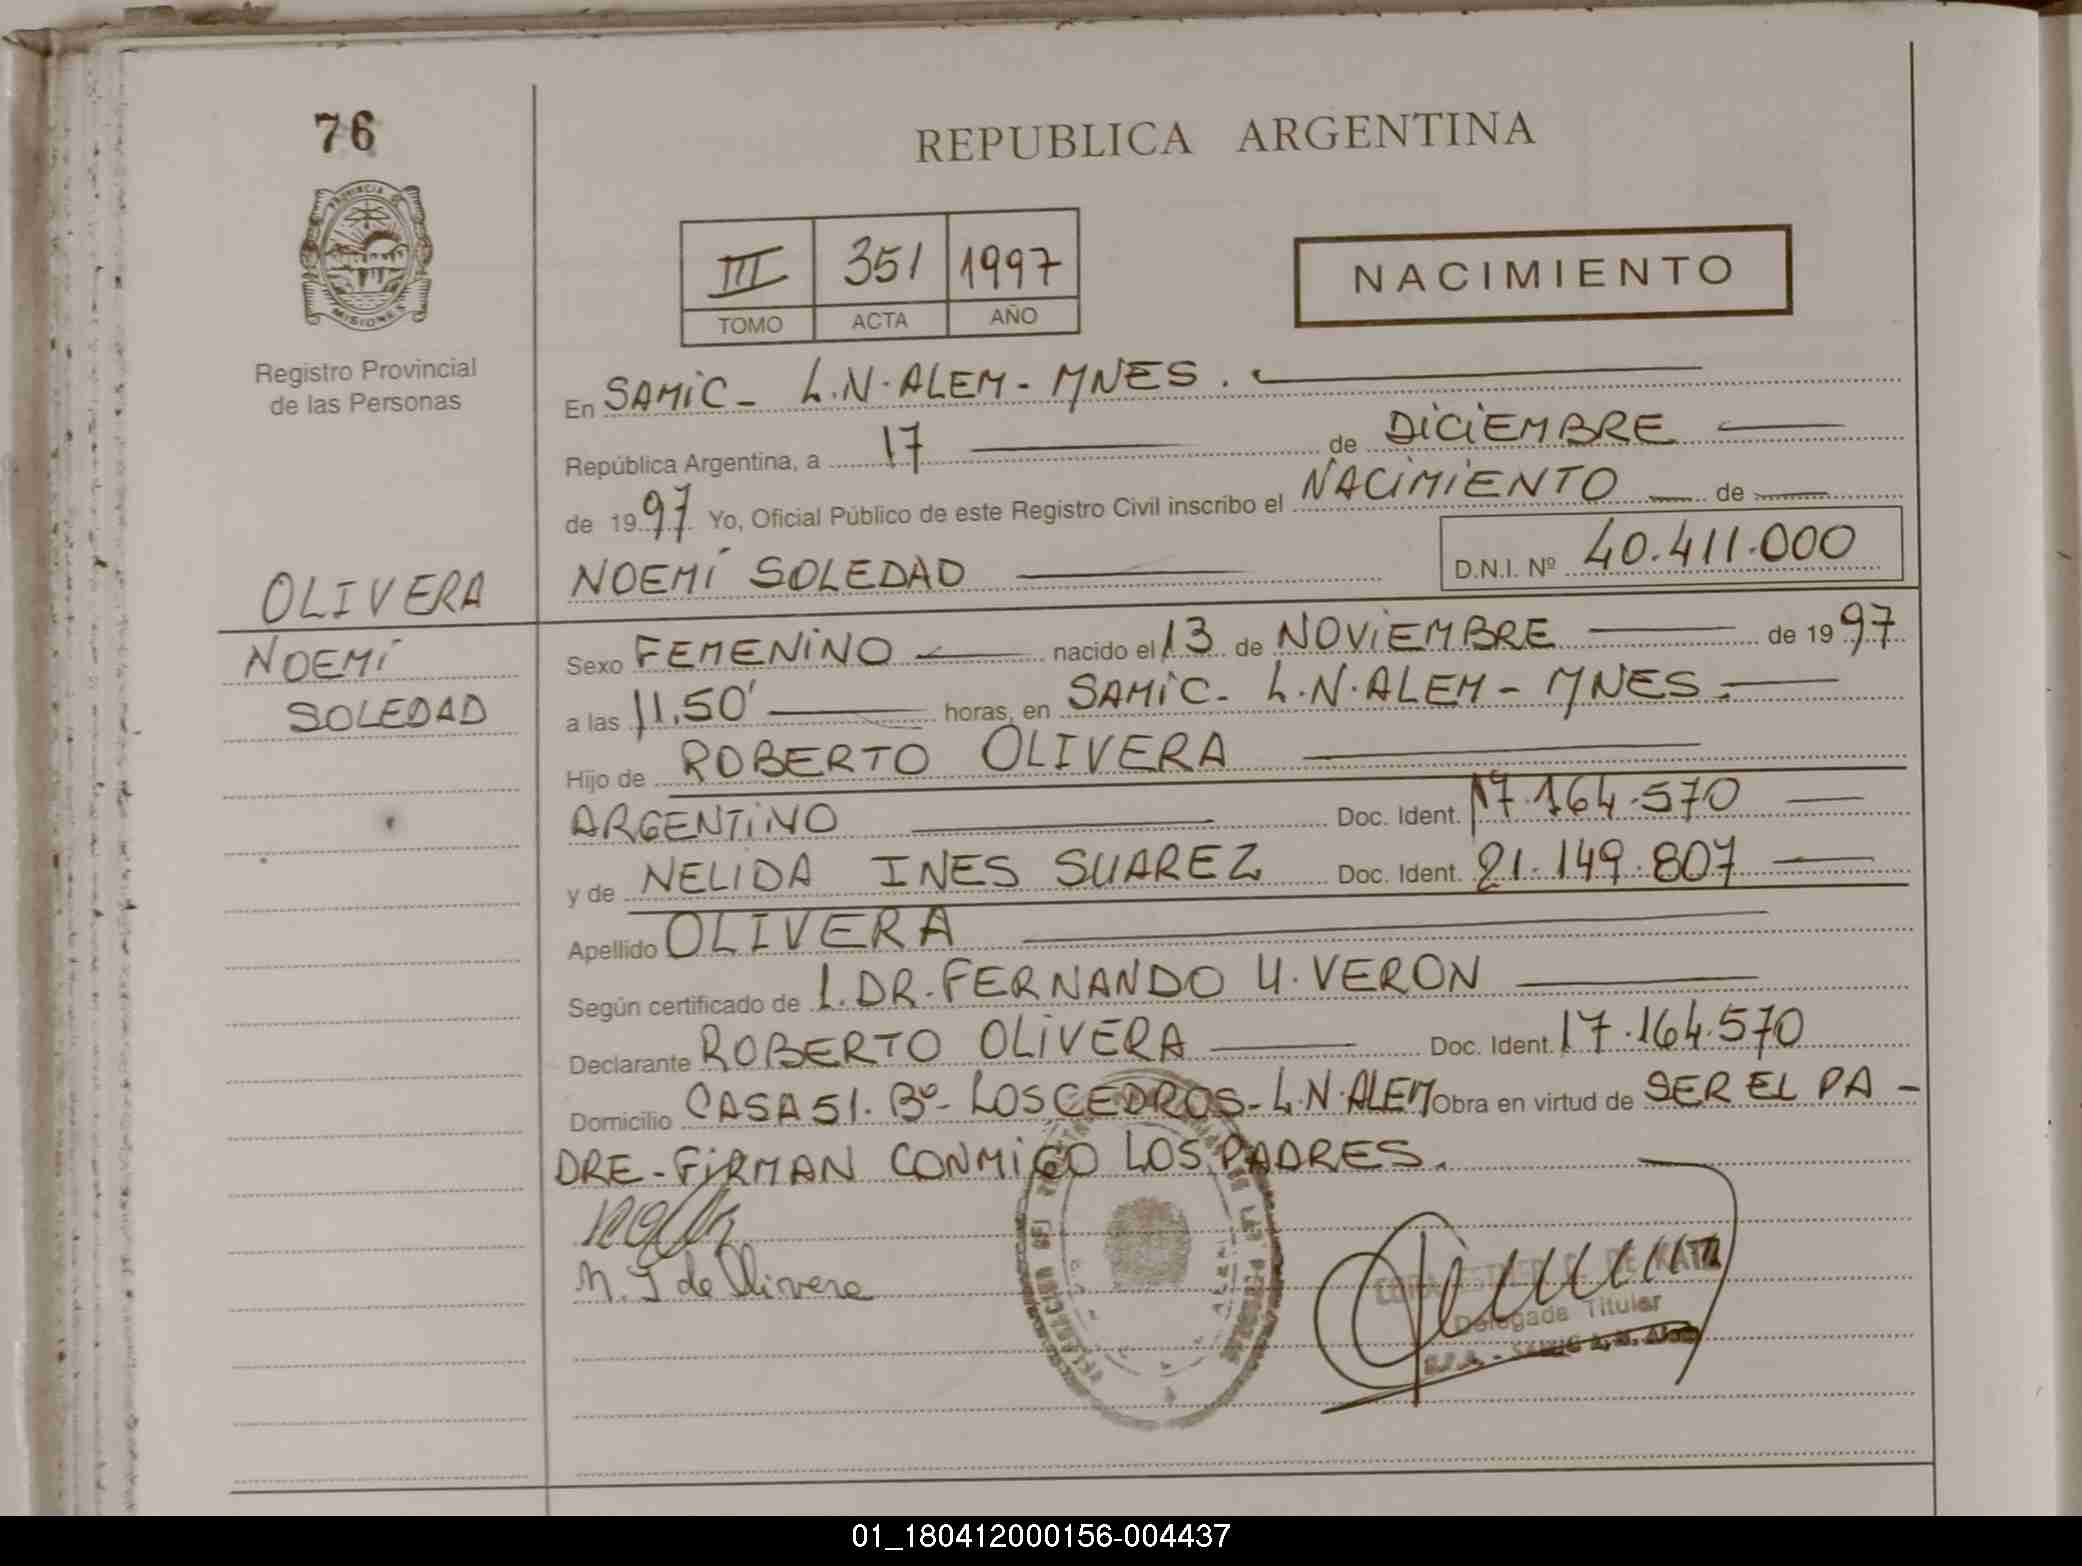 76
REPUBLICA ARGENTINA
PROVINCIA
MISIONES
Registro Provincial
de las Personas
III 351 1997
TOMO ACTA AÑO
NACIMIENTO
En SAMIC - L.N. ALEM - MNES.
República Argentina, a 17 de DICIEMBRE
de 1997 Yo, Oficial Público de este Registro Civil inscribo el NACIMIENTO de
NOEMÍ SOLEDAD D.N.I. Nº 40.411.000
OLIVERA
NOEMÍ
SOLEDAD
Sexo FEMENINO nacido el 13 de NOVIEMBRE de 1997
a las 11.50' horas, en SAMIC - L.N. ALEM - MNES.
Hijo de ROBERTO OLIVERA
ARGENTINO Doc. Ident. 17.164.570
y de NELIDA INES SUAREZ Doc. Ident. 21.149.807
Apellido OLIVERA
Según certificado de L. DR. FERNANDO U. VERON
Declarante ROBERTO OLIVERA Doc. Ident. 17.164.570
Domicilio CASA 51. Bº - LOS CEDROS - L.N. ALEM Obra en virtud de SER EL PA-
DRE - FIRMAN CONMIGO LOS PADRES.
N. I de Olivera
DE KATZ
Delegada Titular
01_180412000156-004437